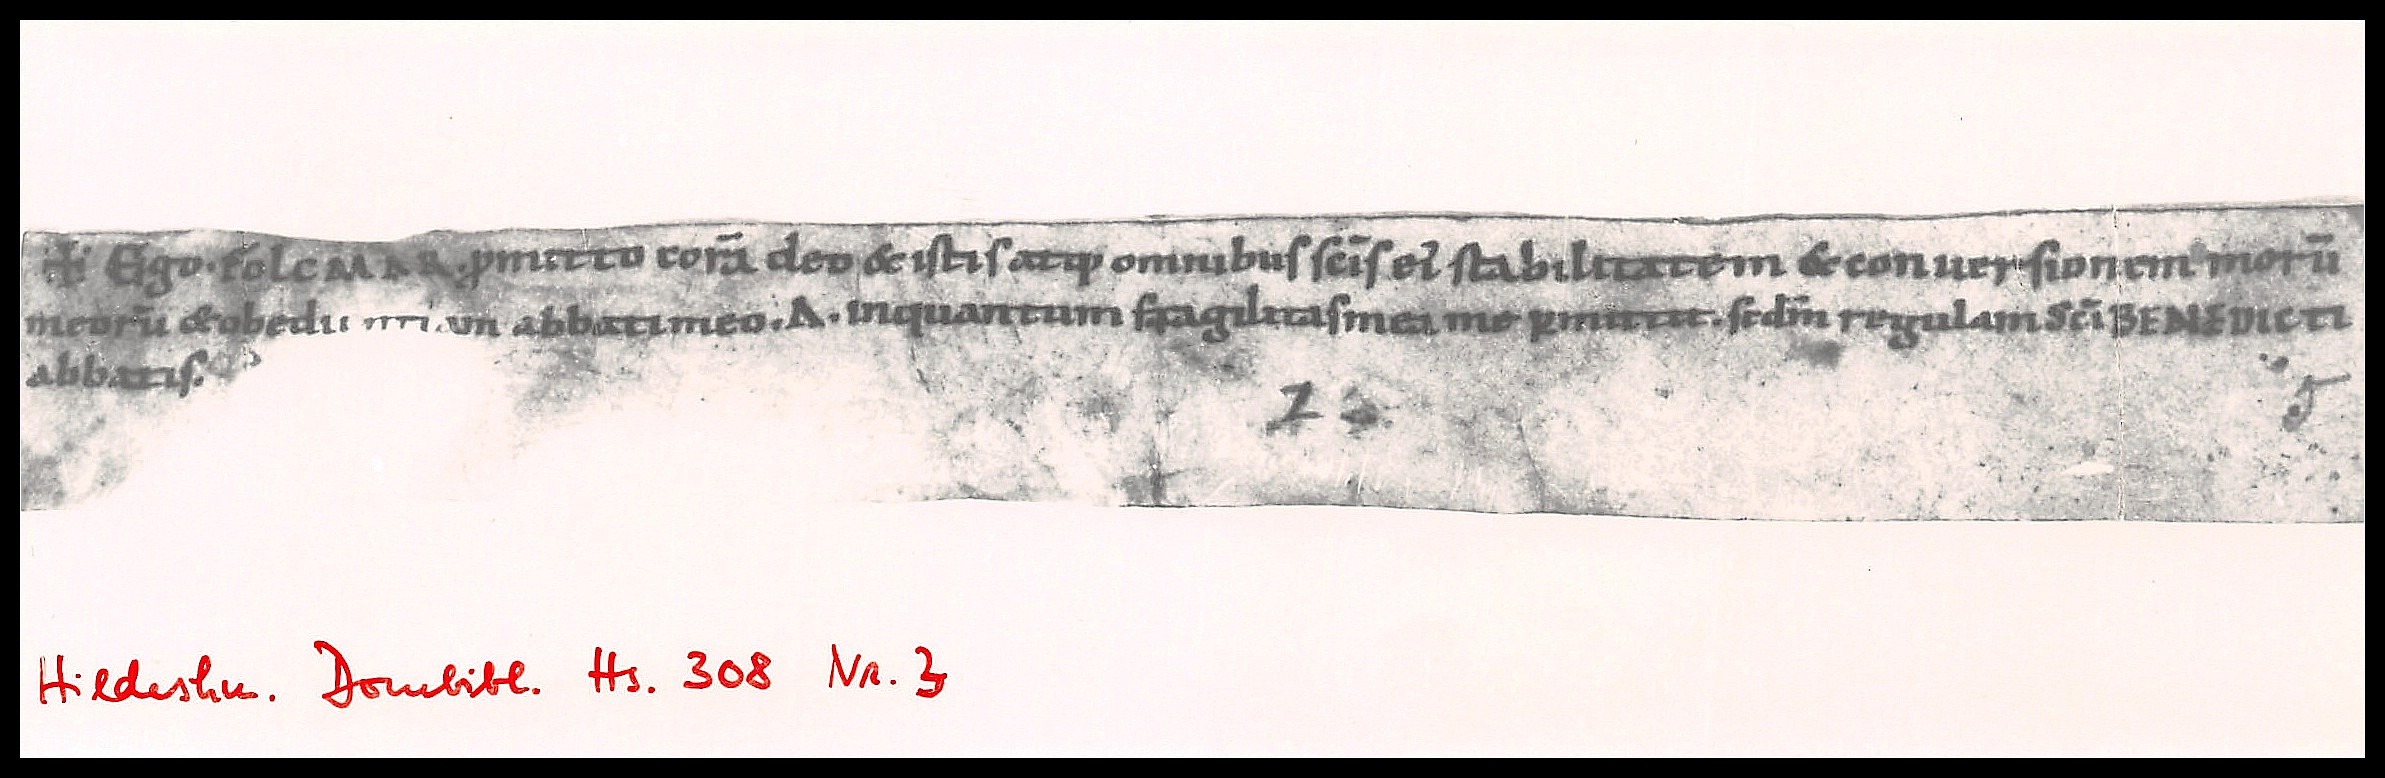 ✝ Ego. folcMAR. ꝓmitto corā deo & istis atqꝫ omnibus scīs eī stabilitatem & conuersionem morū
meorū & obedi abbati meo. A. inquantum fragilitas mei me ꝑmittit. scdm̄ regulam scī BENEDICTI
abbatis.
Hildeshm. Dombibl. Hs. 308 Nr. 3